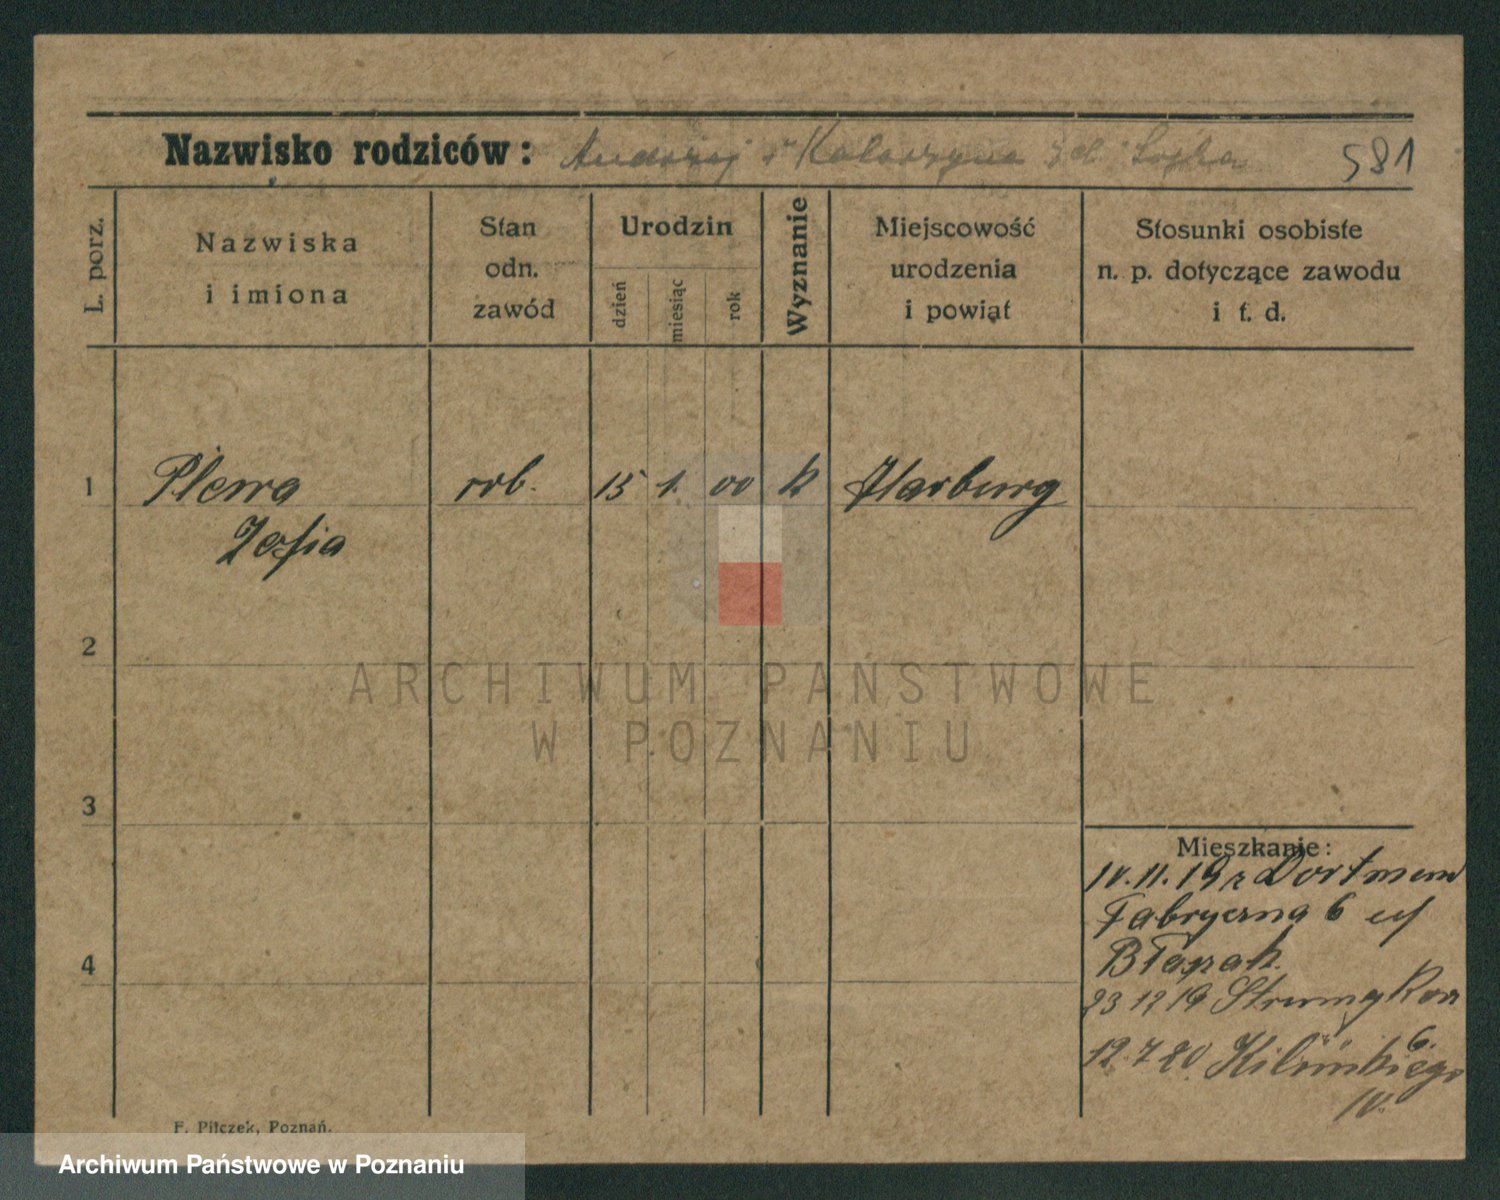 Nazwisko rodziców: Andrzej i Katarzyna zd. Sojka 581
L. porz.
Nazwiska
i imiona
Stan
odn.
zawód
Urodzin
dzień
miesiąc
rok
Wyznanie
Miejscowość
urodzenia
i powiat
Stosunki osobiste
n. p. dotyczące zawodu
i t. d.
1 Plewa rob. 15 1. 00 k Harburg
Zofia
2
ARCHIWUM PAŃSTWOWE
W POZNANIU
3
4
Mieszkanie:
10.11.19 z Dortmun
Fabryczna 6
23 12 19
12.7.20 Kilińskiego
6.
IV.
F. Pilczek, Poznań.
Archiwum Państwowe w Poznaniu